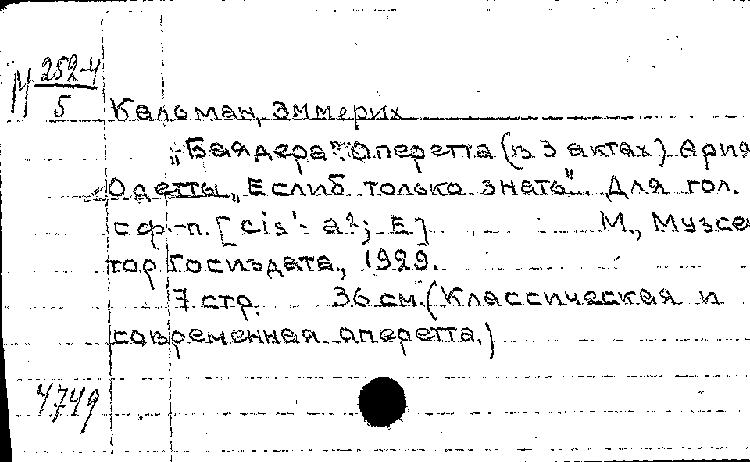 М 252-4
5
Кальман, Эммерих
„Баядера". Оперетта (в 3 актах). Ария
Одетты „Еслиб только знать". Для гол.
с ф-п. [cis'- a²; E] М., Музсек
тор Госиздата, 1929.
7 стр. 36 см. (Классическая и
современная оперетта.)
4749